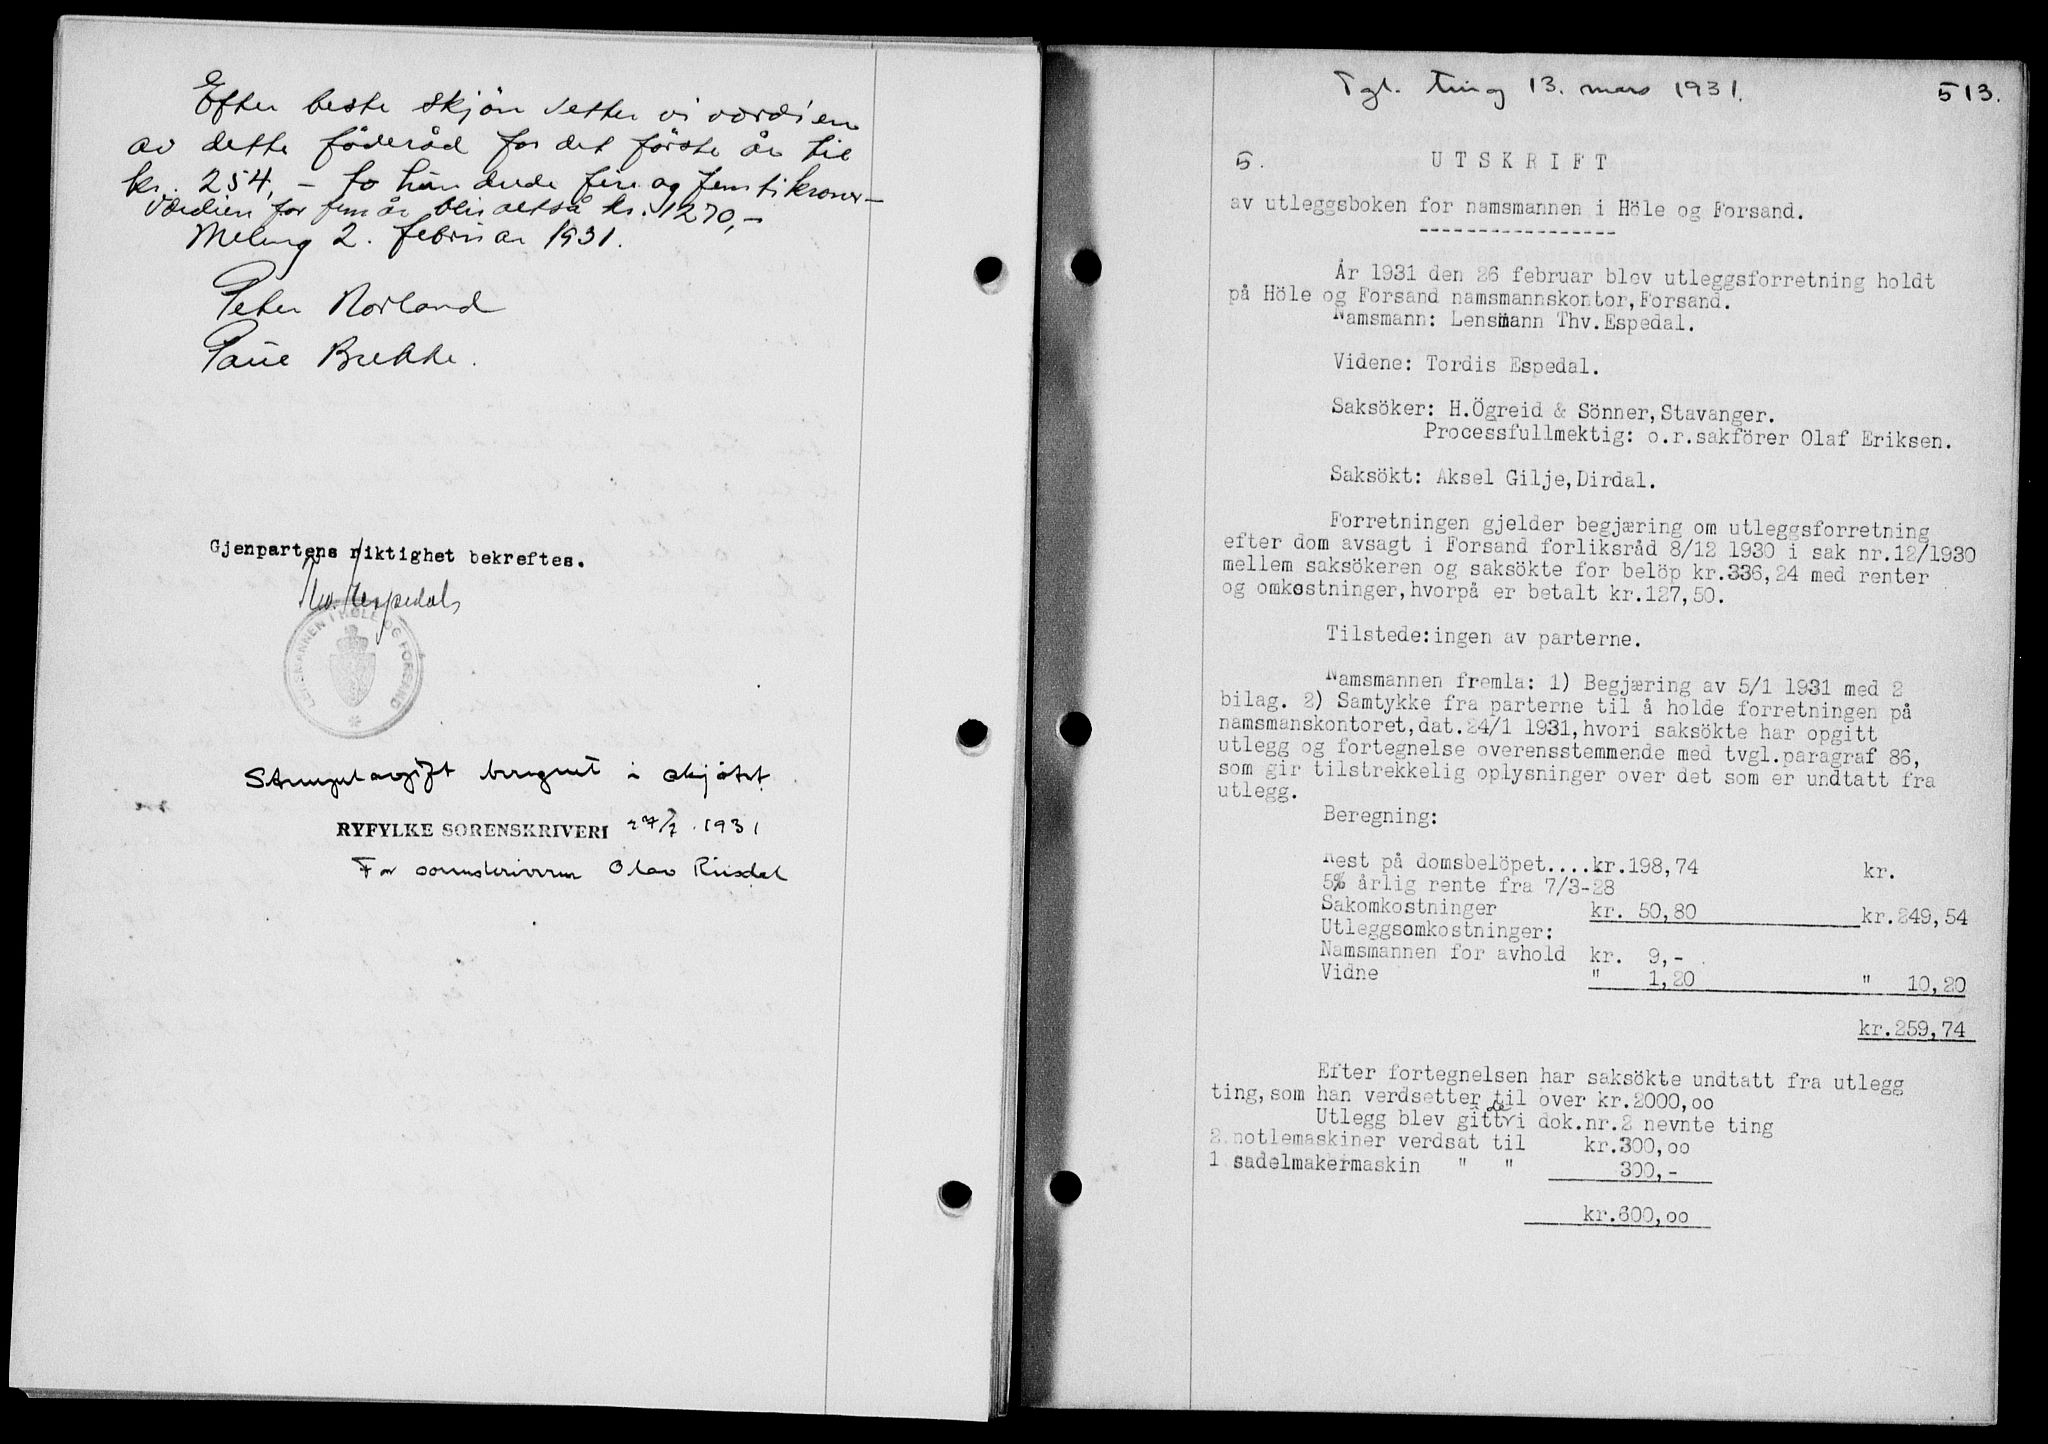 Efter beste skjön setter vi værdien
av dette föderåd for det förste år til
kr. 254,- to hundrede fire og femti kroner-
Værdien for fem år blir altså kr. 1270,-
Meling 2. februar 1931.
Peter Norland
Paul Brekke.
Gjenpartens riktighet bekreftes.
Thv. Espedal
LENSMANNEN I HØLE OG FORSAND
Stempelavgift beregnet i skjötet.
RYFYLKE SORENSKRIVERI 27/2 1931
For sorenskriveren Olav Riisdal
Tgl. ting 13. mars 1931. 513.
5. UTSKRIFT
av utleggsboken for namsmannen i Höle og Forsand.
-----------------
År 1931 den 26 februar blev utleggsforretning holdt
på Höle og Forsand namsmannskontor, Forsand.
Namsmann: Lensmann Thv. Espedal.
Videne: Tordis Espedal.
Saksöker: H.Ögreid & Sönner, Stavanger.
Processfullmektig: o.r.sakförer Olaf Eriksen.
Saksökt: Aksel Gilje, Dirdal.
Forretningen gjelder begjæring om utleggsforretning
efter dom avsagt i Forsand forliksråd 8/12 1930 i sak nr.12/1930
mellem saksökeren og saksökte for belöp kr.336,24 med renter
og omkostninger, hvorpå er betalt kr.127,50.
Tilstede: ingen av parterne.
Namsmannen fremla: 1) Begjæring av 5/1 1931 med 2
bilag. 2) Samtykke fra parterne til å holde forretningen på
namsmanskontoret, dat. 24/1 1931, hvori saksökte har opgitt
utlegg og fortegnelse overensstemmende med tvgl. paragraf 86,
som gir tilstrekkelig oplysninger over det som er undtatt fra
utlegg.
Beregning:
Rest på domsbelöpet....kr.198,74 kr.
5% årlig rente fra 7/3-28
Sakomkostninger kr. 50,80 kr.249,54
Utleggsomkostninger:
Namsmannen for avhold kr. 9,-
Vidne " 1,20 " 10,20
kr.259,74
Efter fortegnelsen har saksökte undtatt fra utlegg
ting, som han verdsetter til over kr.2000,oo
Utlegg blev gitt de i dok.nr.2 nevnte ting
2 notlemaskiner verdsat til kr.300,oo
1 sadelmakermaskin " " 300,-
kr.600,oo